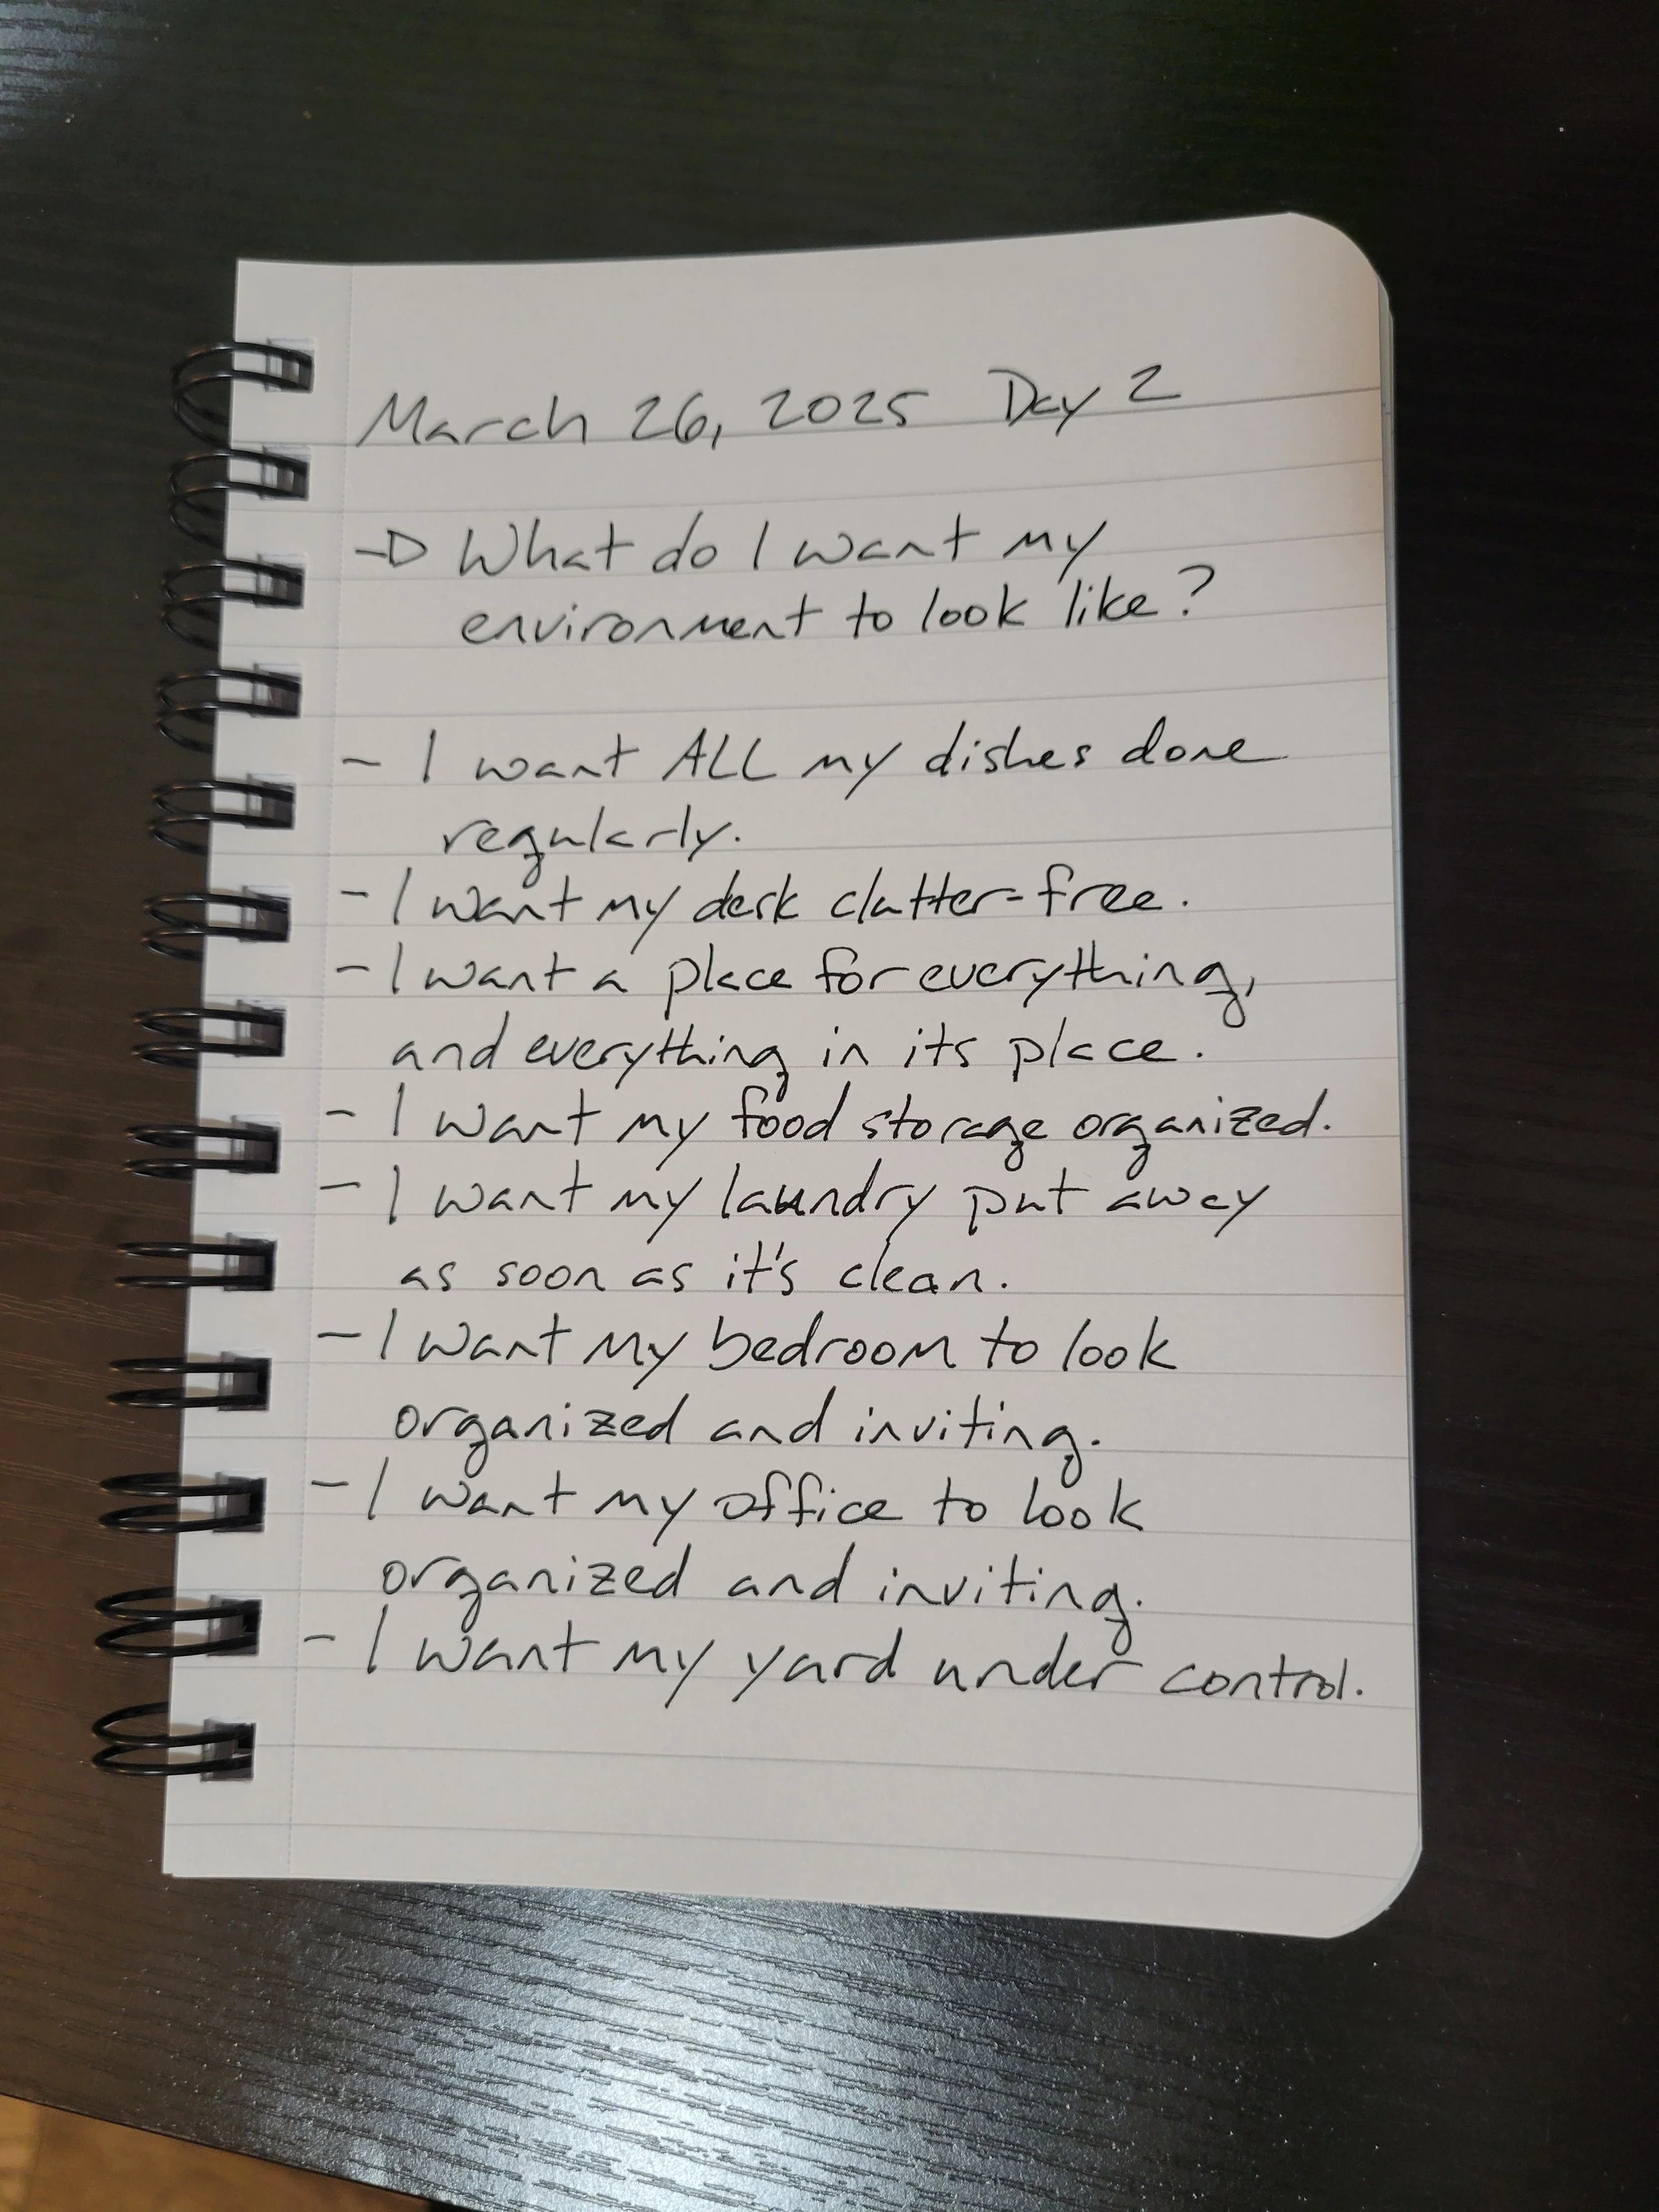 March 26, 2025 Day 2
→ What do I want my
environment to look like?
- I want ALL my dishes done
regularly.
- I want my desk clutter-free.
- I want a place for everything,
and everything in its place.
- I want my food storage organized.
- I want my laundry put away
as soon as it's clean.
- I want my bedroom to look
organized and inviting.
- I want my office to look
organized and inviting.
- I want my yard under control.